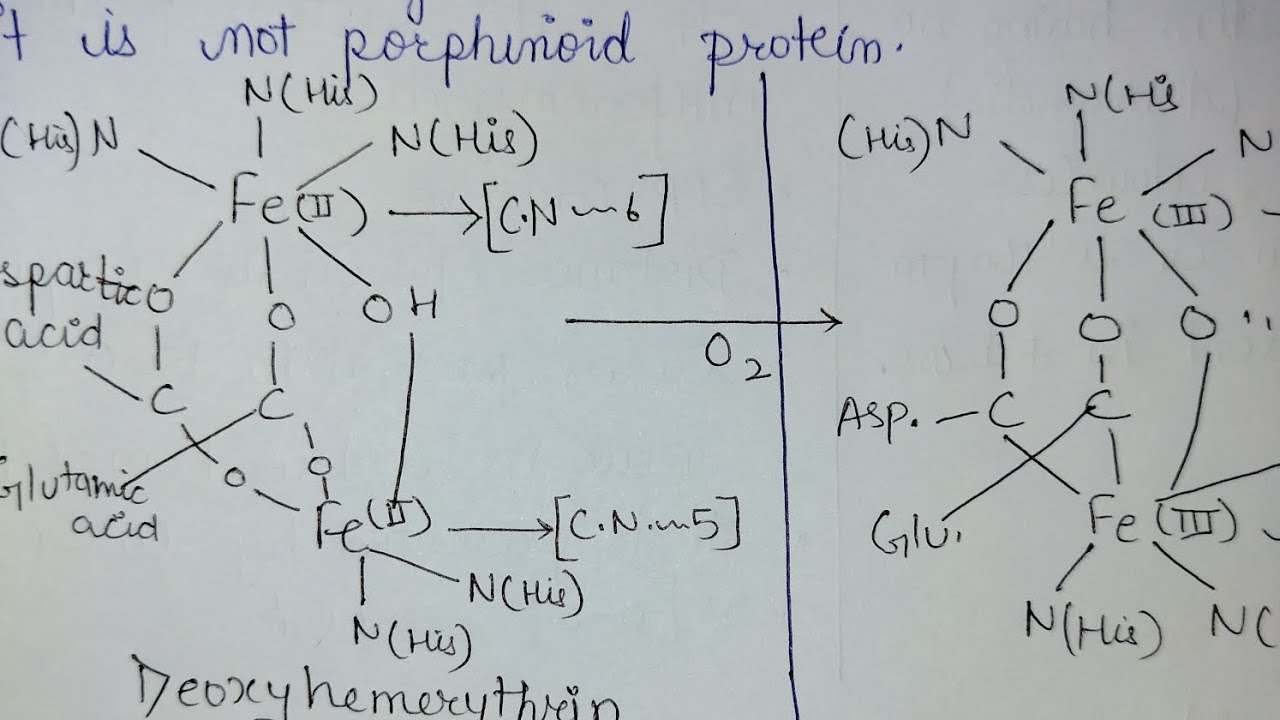 t is not porphinoid protein.
N(His)
(His)N
N(His)
Fe(II) → [C.N~6]
spartic O
acid
O
OH
C
C
Glutamic
acid
O
O
Fe(II) → [C.N.~5]
N(His)
N(His)
Deoxyhemerythrin
O2
N(His
(His)N
N
Fe (III)
O
O
O
Asp. C
C
Glu.
Fe (III)
N(His)
N(